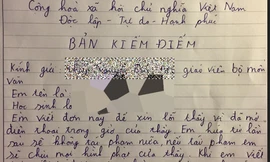 Cộng hoà xã hội chủ nghĩa Việt Nam
Độc lập - Tự do - Hạnh phúc
BẢN KIỂM ĐIỂM
Kính gửi giáo viên bộ môn
Văn
Em tên là
Học sinh lớ
Em viết đơn này để xin lỗi thầy vì đã mở
điện thoại trong giờ của thầy. Em hứa từ lần
sau sẽ không tái phạm nữa, nếu tái phạm em
sẽ chịu mọi hình phạt của thầy. Khi em viết